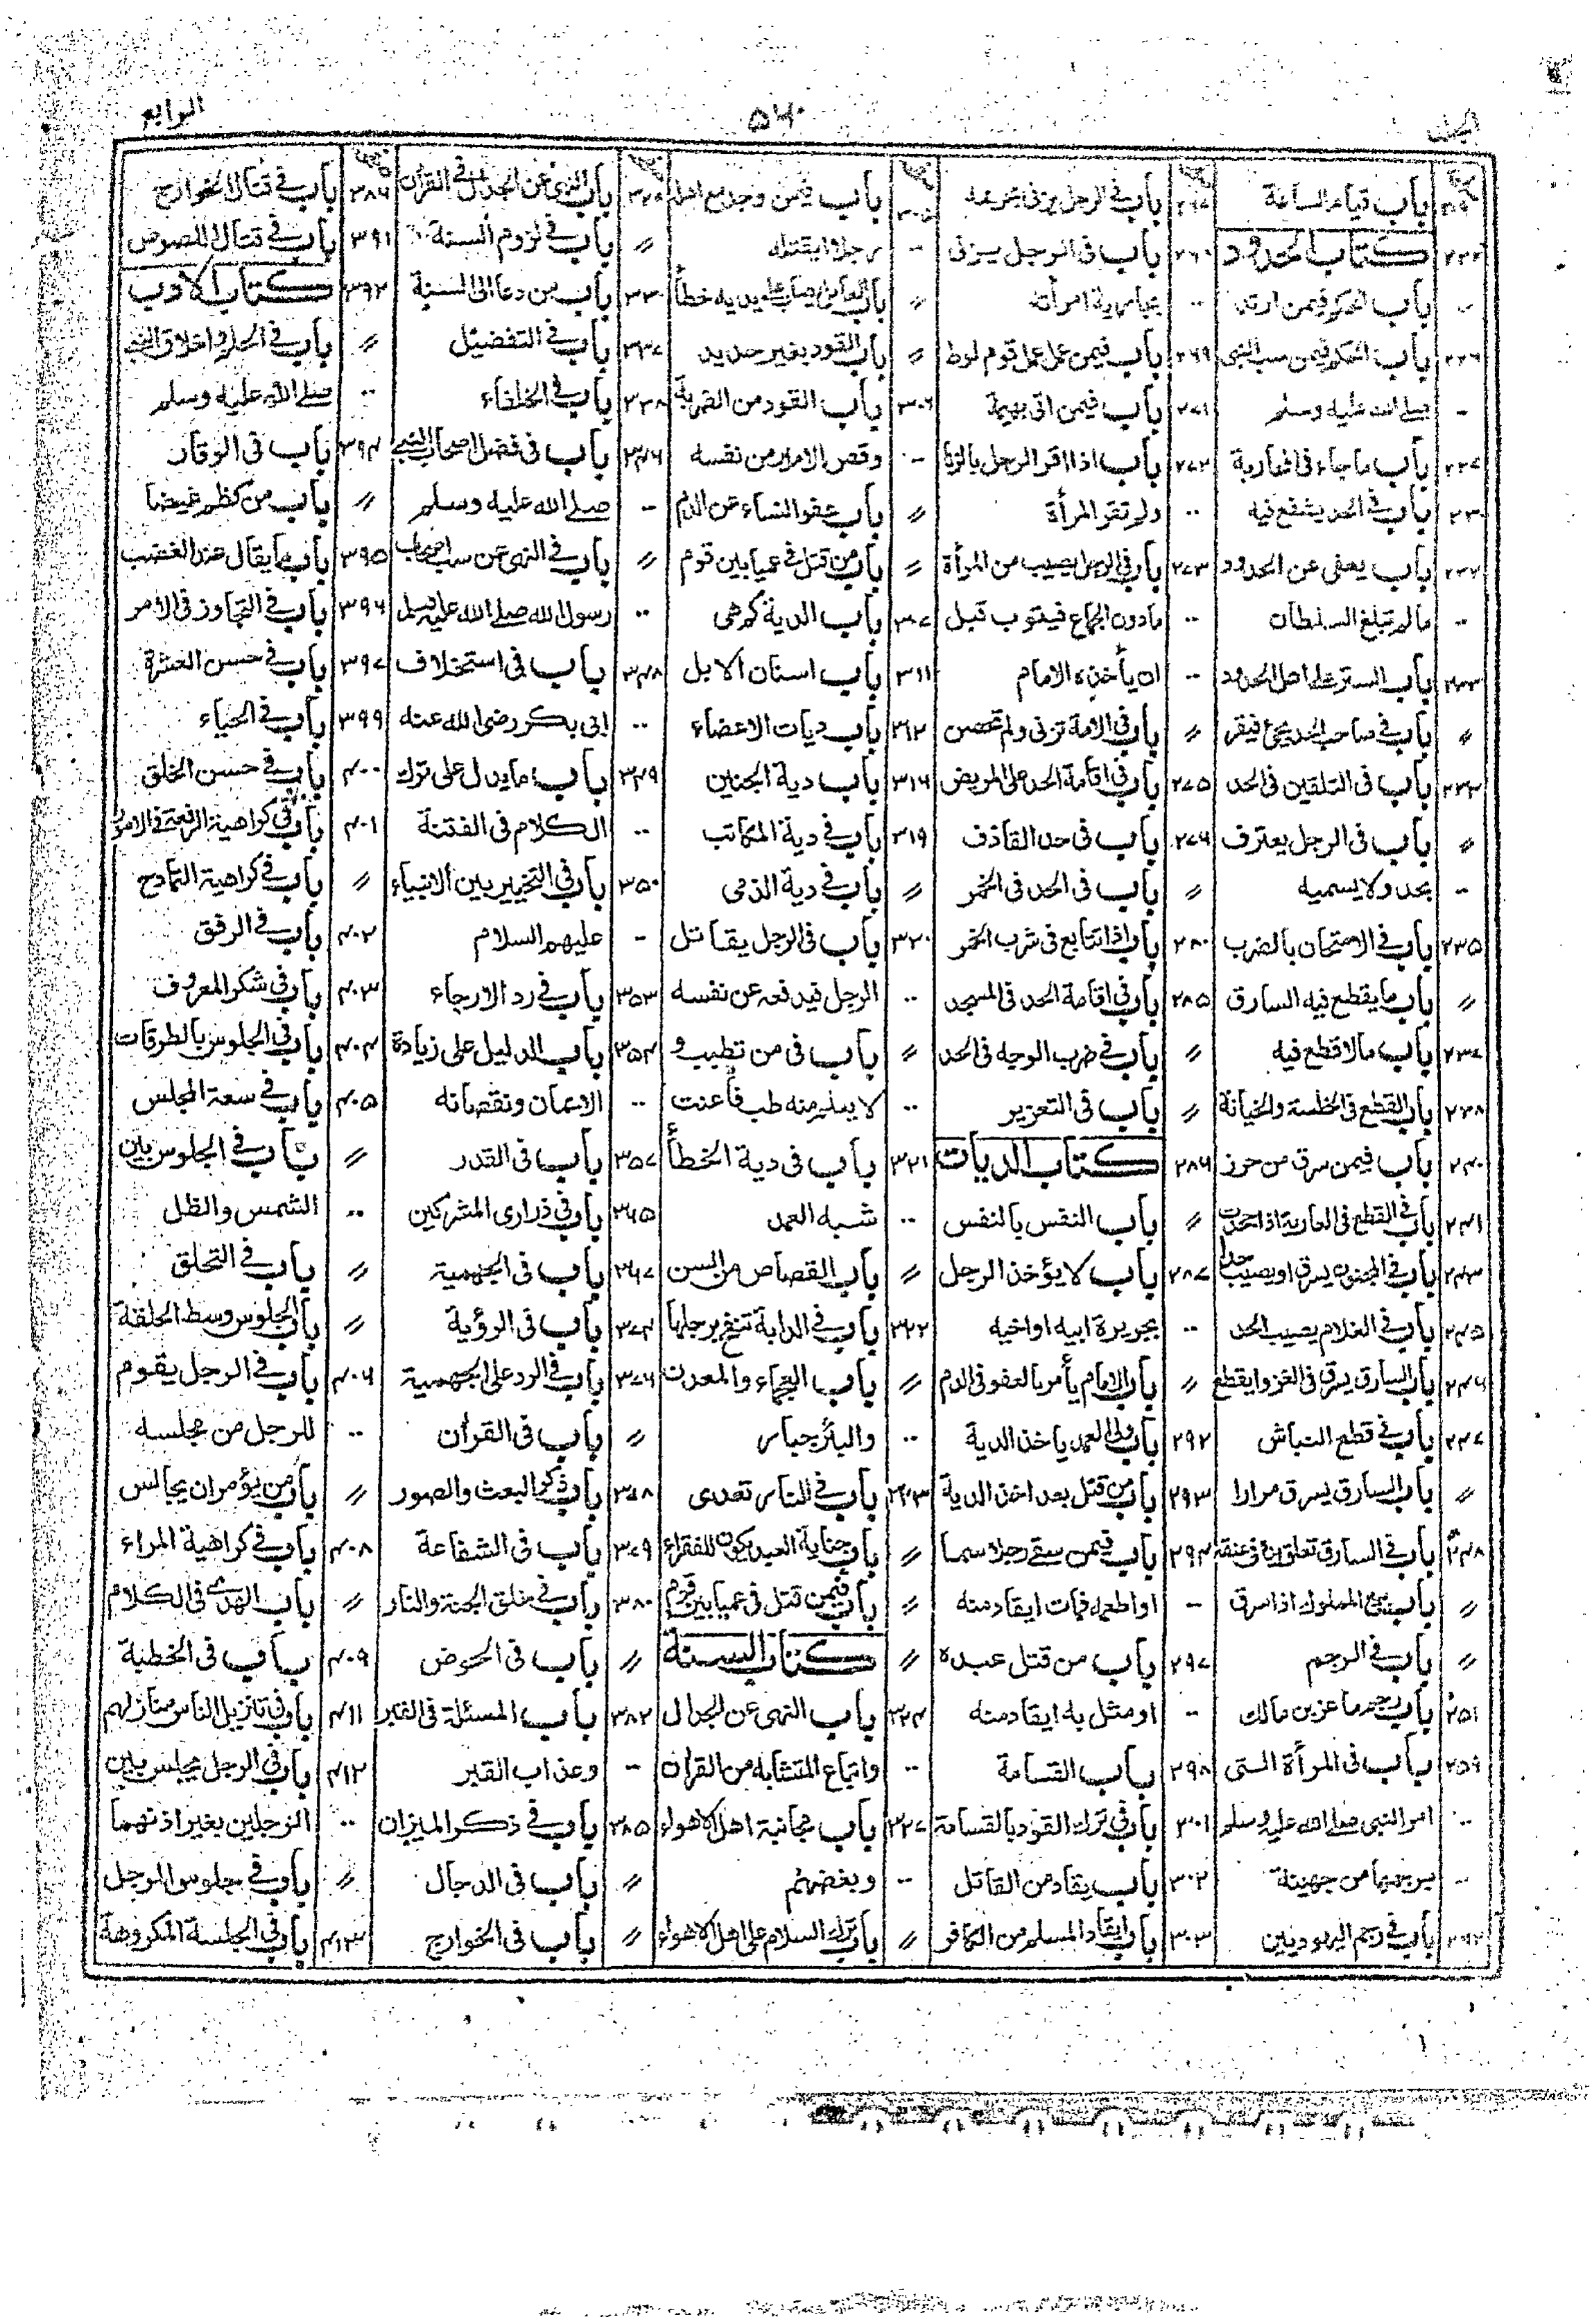 الرابع
۵۶۰
باب قيام الساعة
۲۳۲ كتاب الحدود
باب الحكم فيمن ارتد
باب الحكم فيمن سب النبي
صلى الله عليه وسلم
۲۲۷ باب ما جاء في المحاربة
۲۳۰ باب في الحد يشفع فيه
باب يعفى عن الحدود
مالم تبلغ السلطان
باب الستر على اهل الحدود
〃 باب في صاحب الحد يجئ فيقر
باب في التلقين في الحد
〃 باب في الرجل يعترف
بحد ولا يسميه
۲۳۵ باب في الامتحان بالضرب
〃 باب ما يقطع فيه السارق
۲۳۷ باب ما لا قطع فيه
۲۳۸ باب القطع في الخلسة والخيانة
۲۴۰ باب فيمن سرق من حرز
۲۴۱ باب في القطع في العارية اذا جحدت
۲۴۳ باب في المجنون يسرق او يصيب حدا
۲۴۵ باب في الغلام يصيب الحد
۲۴۶ باب السارق يسرق في الغزو ايقطع
۲۴۷ باب في قطع النباش
〃 باب السارق يسرق مرارا
۲۴۸ باب في السارق تعلق يده في عنقه
〃 باب بيع المملوك اذا سرق
〃 باب في الرجم
۲۵۱ باب رجم ماعز بن مالك
۲۵۹ باب في المرأة التى
امر النبى صلى الله عليه وسلم
برجمها من جهينة
باب في رجم اليهوديين
باب في الرجل يزنى بحريمه
باب في الرجل يزنى
بجارية امرأته
۲۶۹ باب فيمن عمل عمل قوم لوط
۲۷۱ باب فيمن اتى بهيمة
۲۷۲ باب اذا اقر الرجل بالزنا
ولم تقر المرأة
۲۷۳ باب في الرجل يصيب من المرأة
مادون الجماع فيتوب قبل
ان يأخذه الامام
〃 باب في الامة تزنى ولم تحصن
۲۷۵ باب في اقامة الحد على المريض
۲۷۶ باب في حد القاذف
〃 باب في الحد في الخمر
۲۸۰ باب اذا تتابع في شرب الخمر
۲۸۵ باب في اقامة الحد في المسجد
〃 باب في ضرب الوجه في الحد
〃 باب في التعزير
۲۸۶ كتاب الديات
〃 باب النفس بالنفس
۲۸۷ باب لا يؤخذ الرجل
بجريرة ابيه او اخيه
〃 باب الامام يأمر بالعفو في الدم
۲۹۲ باب ولى العمد ياخذ الدية
۲۹۳ باب من قتل بعد اخذ الدية
۲۹۴ باب فيمن سقى رجلا سما
او اطعمه فمات ايقاد منه
۲۹۷ باب من قتل عبده
او مثل به ايقاد منه
۲۹۸ باب القسامة
۳۰۱ باب في ترك القود بالقسامة
۳۰۲ باب يقاد من القاتل
۳۰۳ باب ايقاد المسلم من الكافر
۳۰۵ باب فيمن وجد مع اهله
رجلا ايقتله
〃 باب العامل يصاب على يديه خطأ
〃 باب القود بغير حديد
۳۰۶ باب القود من الضربة
وقص الامير من نفسه
〃 باب عفو النساء عن الدم
〃 باب من قتل في عميا بين قوم
۳۰۷ باب الدية كم هى
۳۱۱ باب اسنان الابل
۳۱۲ باب ديات الاعضاء
۳۱۶ باب دية الجنين
۳۱۹ باب في دية المكاتب
〃 باب في دية الذمى
۳۲۰ باب في الرجل يقاتل
الرجل فيدفعه عن نفسه
〃 باب في من تطبب و
لا يعلم منه طب فأعنت
۳۲۱ باب في دية الخطأ
شبه العمد
〃 باب القصاص من السن
۳۲۲ باب في الدابة تنفح برجلها
〃 باب العجماء والمعدن
والبئر جبار
۳۲۳ باب في النار تعدى
〃 باب جناية العبد يكون للفقراء
〃 باب فيمن قتل في عميا بين قوم
〃 كتاب السنة
۳۲۴ باب النهى عن الجدال
واتباع المتشابه من القران
۳۲۷ باب مجانبة اهل الاهواء
وبغضهم
〃 باب ترك السلام على اهل الاهواء
باب النهى عن الجدال في القران
〃 باب في لزوم السنة
۳۳۰ باب من دعا الى السنة
۳۳۷ باب في التفضيل
۳۳۸ باب في الخلفاء
۳۴۶ باب في فضل اصحاب النبى
صلى الله عليه وسلم
〃 باب في النهى عن سب اصحاب
رسول الله صلى الله عليه وسلم
۳۴۸ باب في استخلاف
ابى بكر رضى الله عنه
۳۴۹ باب ما يدل على ترك
الكلام في الفتنة
۳۵۰ باب في التخيير بين الانبياء
عليهم السلام
۳۵۳ باب في رد الارجاء
۳۵۴ باب الدليل على زيادة
الايمان ونقصانه
۳۵۷ باب في القدر
۳۶۵ باب في ذرارى المشركين
۳۶۷ باب في الجهمية
۳۷۴ باب في الرؤية
۳۷۶ باب في الرد على الجهمية
〃 باب في القرأن
۳۷۸ باب ذكر البعث والصور
۳۷۹ باب في الشفاعة
۳۸۰ باب في خلق الجنة والنار
〃 باب في الحوض
۳۸۲ باب المسئلة في القبر
وعذاب القبر
۳۸۵ باب في ذكر الميزان
〃 باب في الدجال
〃 باب في الخوارج
۳۸۶ باب في قتال الخوارج
۳۹۱ باب في قتال اللصوص
۳۹۲ كتاب الادب
〃 باب في الحلم واخلاق النبى
صلى الله عليه وسلم
۳۹۴ باب في الوقار
〃 باب من كظم غيضا
۳۹۵ باب ما يقال عند الغضب
۳۹۶ باب في التجاوز في الامر
۳۹۷ باب في حسن العشرة
۳۹۹ باب في الحياء
۴۰۰ باب في حسن الخلق
۴۰۱ باب في كراهية الرفعة في الامور
〃 باب في كراهية التمادح
۴۰۲ باب في الرفق
۴۰۳ باب في شكر المعروف
۴۰۴ باب في الجلوس بالطرقات
۴۰۵ باب في سعة المجلس
〃 باب في الجلوس بين
الشمس والظل
〃 باب في التحلق
〃 باب الجلوس وسط الحلقة
۴۰۶ باب في الرجل يقوم
للرجل من مجلسه
〃 باب من يؤمر ان يجالس
۴۰۸ باب في كراهية المراء
〃 باب الهدى في الكلام
۴۰۹ باب في الخطبة
۴۱۱ باب في تنزيل الناس منازلهم
۴۱۲ باب في الرجل يجلس بين
الرجلين بغير اذنهما
〃 باب في جلوس الرجل
۴۱۳ باب في الجلسة المكروهة